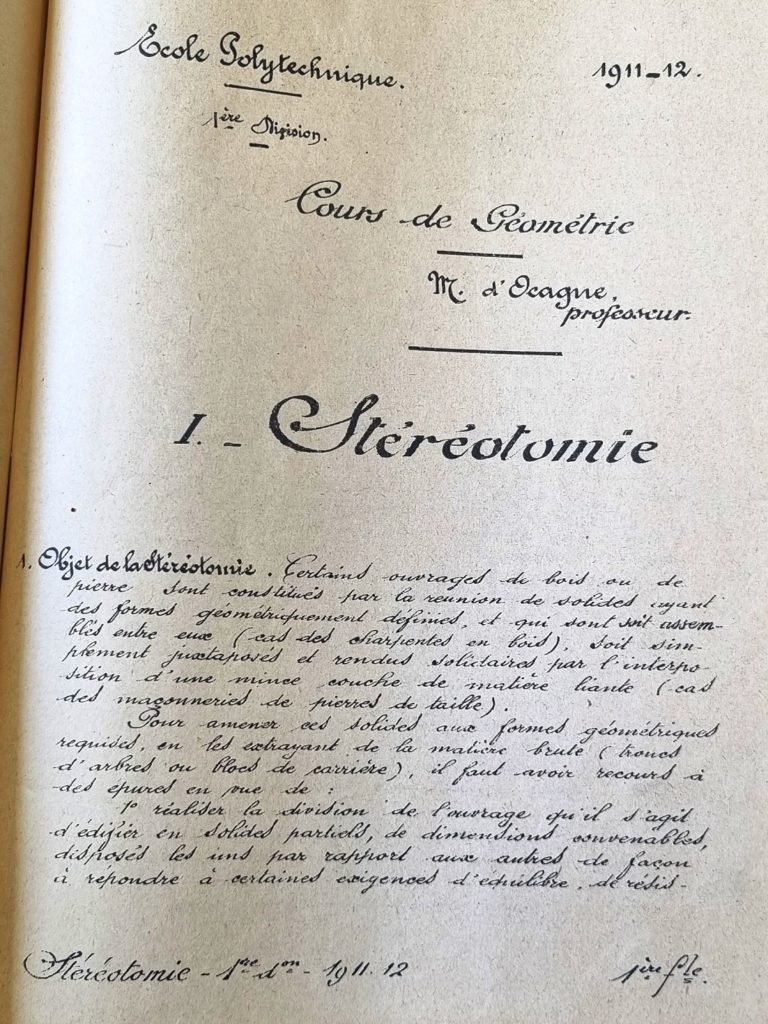 Ecole Polytechnique.
1911-12.
1ère Division.
Cours de Géométrie
M. d'Ocagne,
professeur.
I. - Stéréotomie
1. Objet de la Stéréotomie. Certains ouvrages de bois ou de
pierre sont constitués par la réunion de solides ayant
des formes géométriquement définies, et qui sont soit assem-
blés entre eux (cas des charpentes en bois), soit sim-
plement juxtaposés et rendus solidaires par l'interpo-
sition d'une mince couche de matière liante (cas
des maçonneries de pierres de taille).
Pour amener ces solides aux formes géométriques
requises, en les extrayant de la matière brute (troncs
d'arbres ou blocs de carrière), il faut avoir recours à
des épures en vue de :
1° réaliser la division de l'ouvrage qu'il s'agit
d'édifier en solides partiels, de dimensions convenables,
disposés les uns par rapport aux autres de façon
à répondre à certaines exigences d'équilibre, de résis-
Stéréotomie - 1re don - 1911.12
1ère fle.